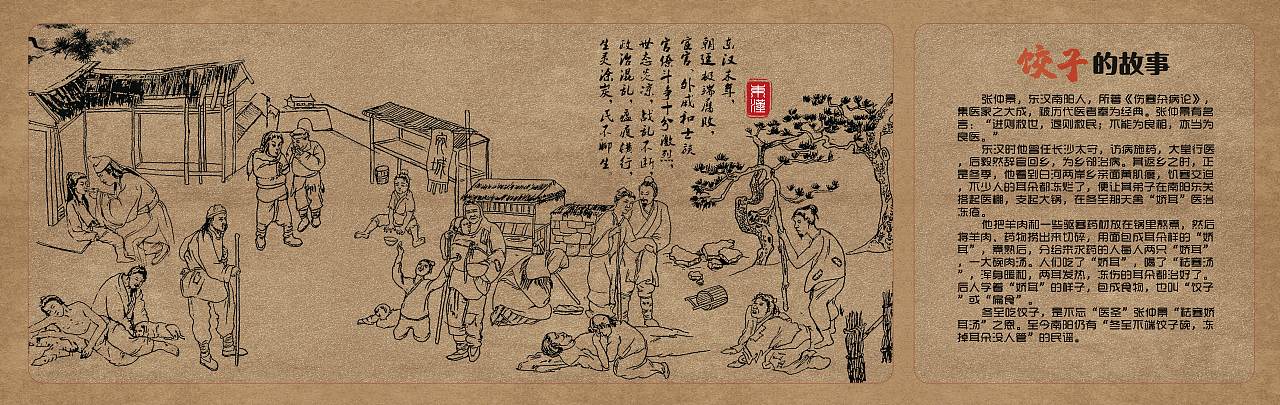 东汉末年，
朝廷极端腐败，
宦官、外戚和士族
官僚斗争十分激烈，
世态炎凉，战乱不断
政治混乱，瘟疫横行，
生灵涂炭，民不聊生
東漢
宛城
饺子的故事
张仲景，东汉南阳人，所著《伤寒杂病论》，
集医家之大成，被历代医者奉为经典。张仲景有名
言：“进则救世，退则救民；不能为良相，亦当为
良医。”
东汉时他曾任长沙太守，访病施药，大堂行医
，后毅然辞官回乡，为乡邻治病。其返乡之时，正
是冬季，他看到白河两岸乡亲面黄肌瘦，饥寒交迫
，不少人的耳朵都冻烂了，便让其弟子在南阳东关
搭起医棚，支起大锅，在冬至那天舍“娇耳”医治
冻疮。
他把羊肉和一些驱寒药材放在锅里熬煮，然后
将羊肉、药物捞出来切碎，用面包成耳朵样的“娇
耳”，煮熟后，分给来求药的人每人两只“娇耳”
，一大碗肉汤。人们吃了“娇耳”，喝了“祛寒汤
”，浑身暖和，两耳发热，冻伤的耳朵都治好了。
后人学着“娇耳”的样子，包成食物，也叫“饺子
”或“扁食”。
冬至吃饺子，是不忘“医圣”张仲景“祛寒娇
耳汤”之恩。至今南阳仍有“冬至不端饺子碗，冻
掉耳朵没人管”的民谣。